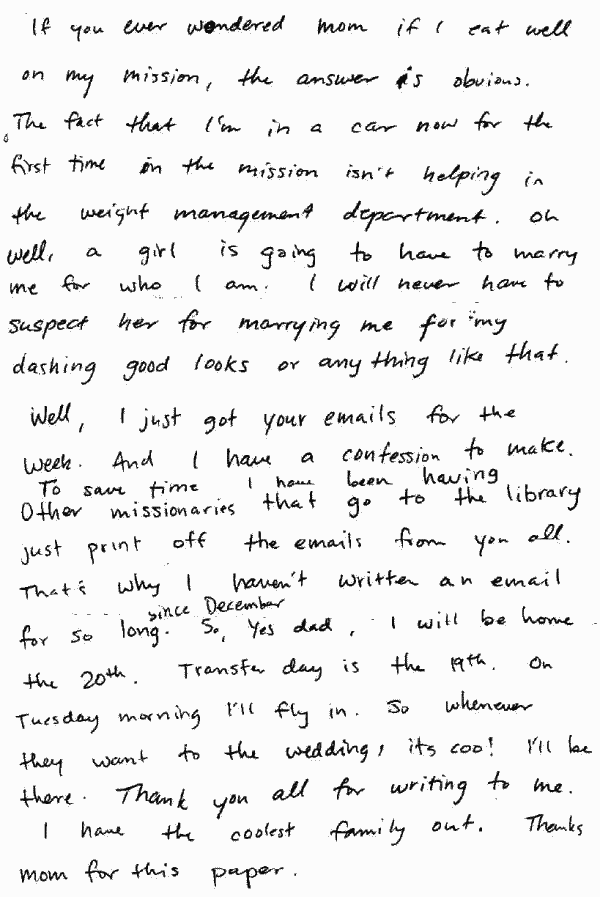 If you ever wondered mom if I eat well
on my mission, the answer is obvious.
The fact that I'm in a car now for the
first time in the mission isn't helping in
the weight management department. Oh
well, a girl is going to have to marry
me for who I am. I will never have to
suspect her for marrying me for my
dashing good looks or anything like that.
Well, I just got your emails for the
week. And I have a confession to make.
To save time I have been having
Other missionaries that go to the library
just print off the emails from you all.
That's why I haven't written an email
since December
for so long. So, Yes dad, I will be home
the 20th. Transfer day is the 19th. On
Tuesday morning I'll fly in. So whenever
they want to the wedding, its cool I'll be
there. Thank you all for writing to me.
I have the coolest family out. Thanks
mom for this paper.